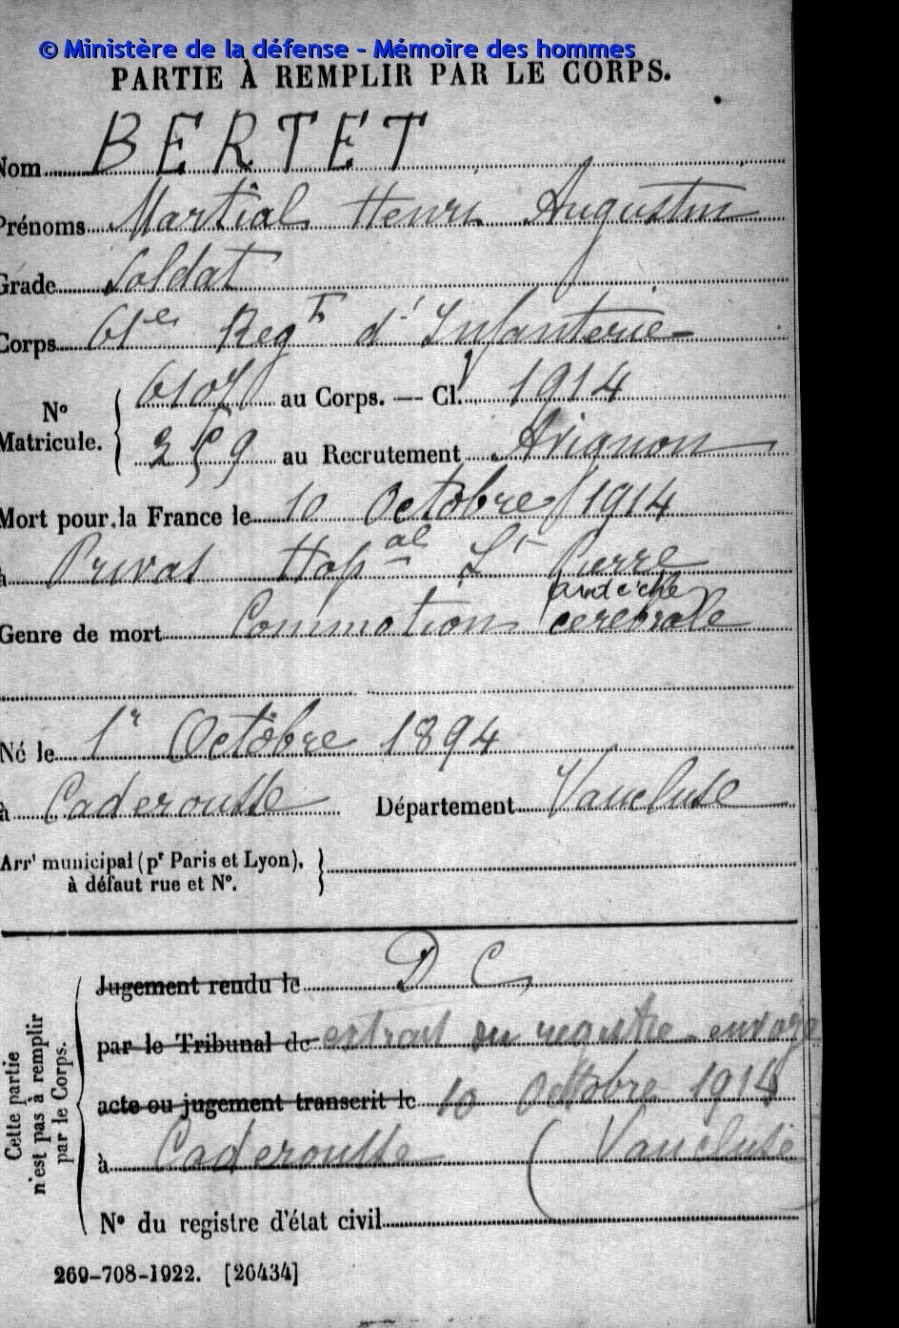 © Ministère de la défense - Mémoire des hommes
PARTIE À REMPLIR PAR LE CORPS.
Nom BERTET
Prénoms Martial Henri Augustin
Grade Soldat
Corps 61e Regt d'Infanterie
N° Matricule. { au Corps. — Cl. 1914
259 au Recrutement Avignon
Mort pour la France le 10 Octobre 1914
à Privas Hopal St Pierre
Ardèche
Genre de mort Commotion cérébrale
Né le 1r Octobre 1894
à Caderousse Département Vaucluse
Arrt municipal (pr Paris et Lyon),
à défaut rue et N°.
Cette partie
n'est pas à remplir
par le Corps.
Jugement rendu le D C
par le Tribunal de extrait du registre envoyé
acte ou jugement transcrit le 10 Octobre 1914
à Caderousse (Vaucluse
N° du registre d'état civil
269-708-1922. [26434]